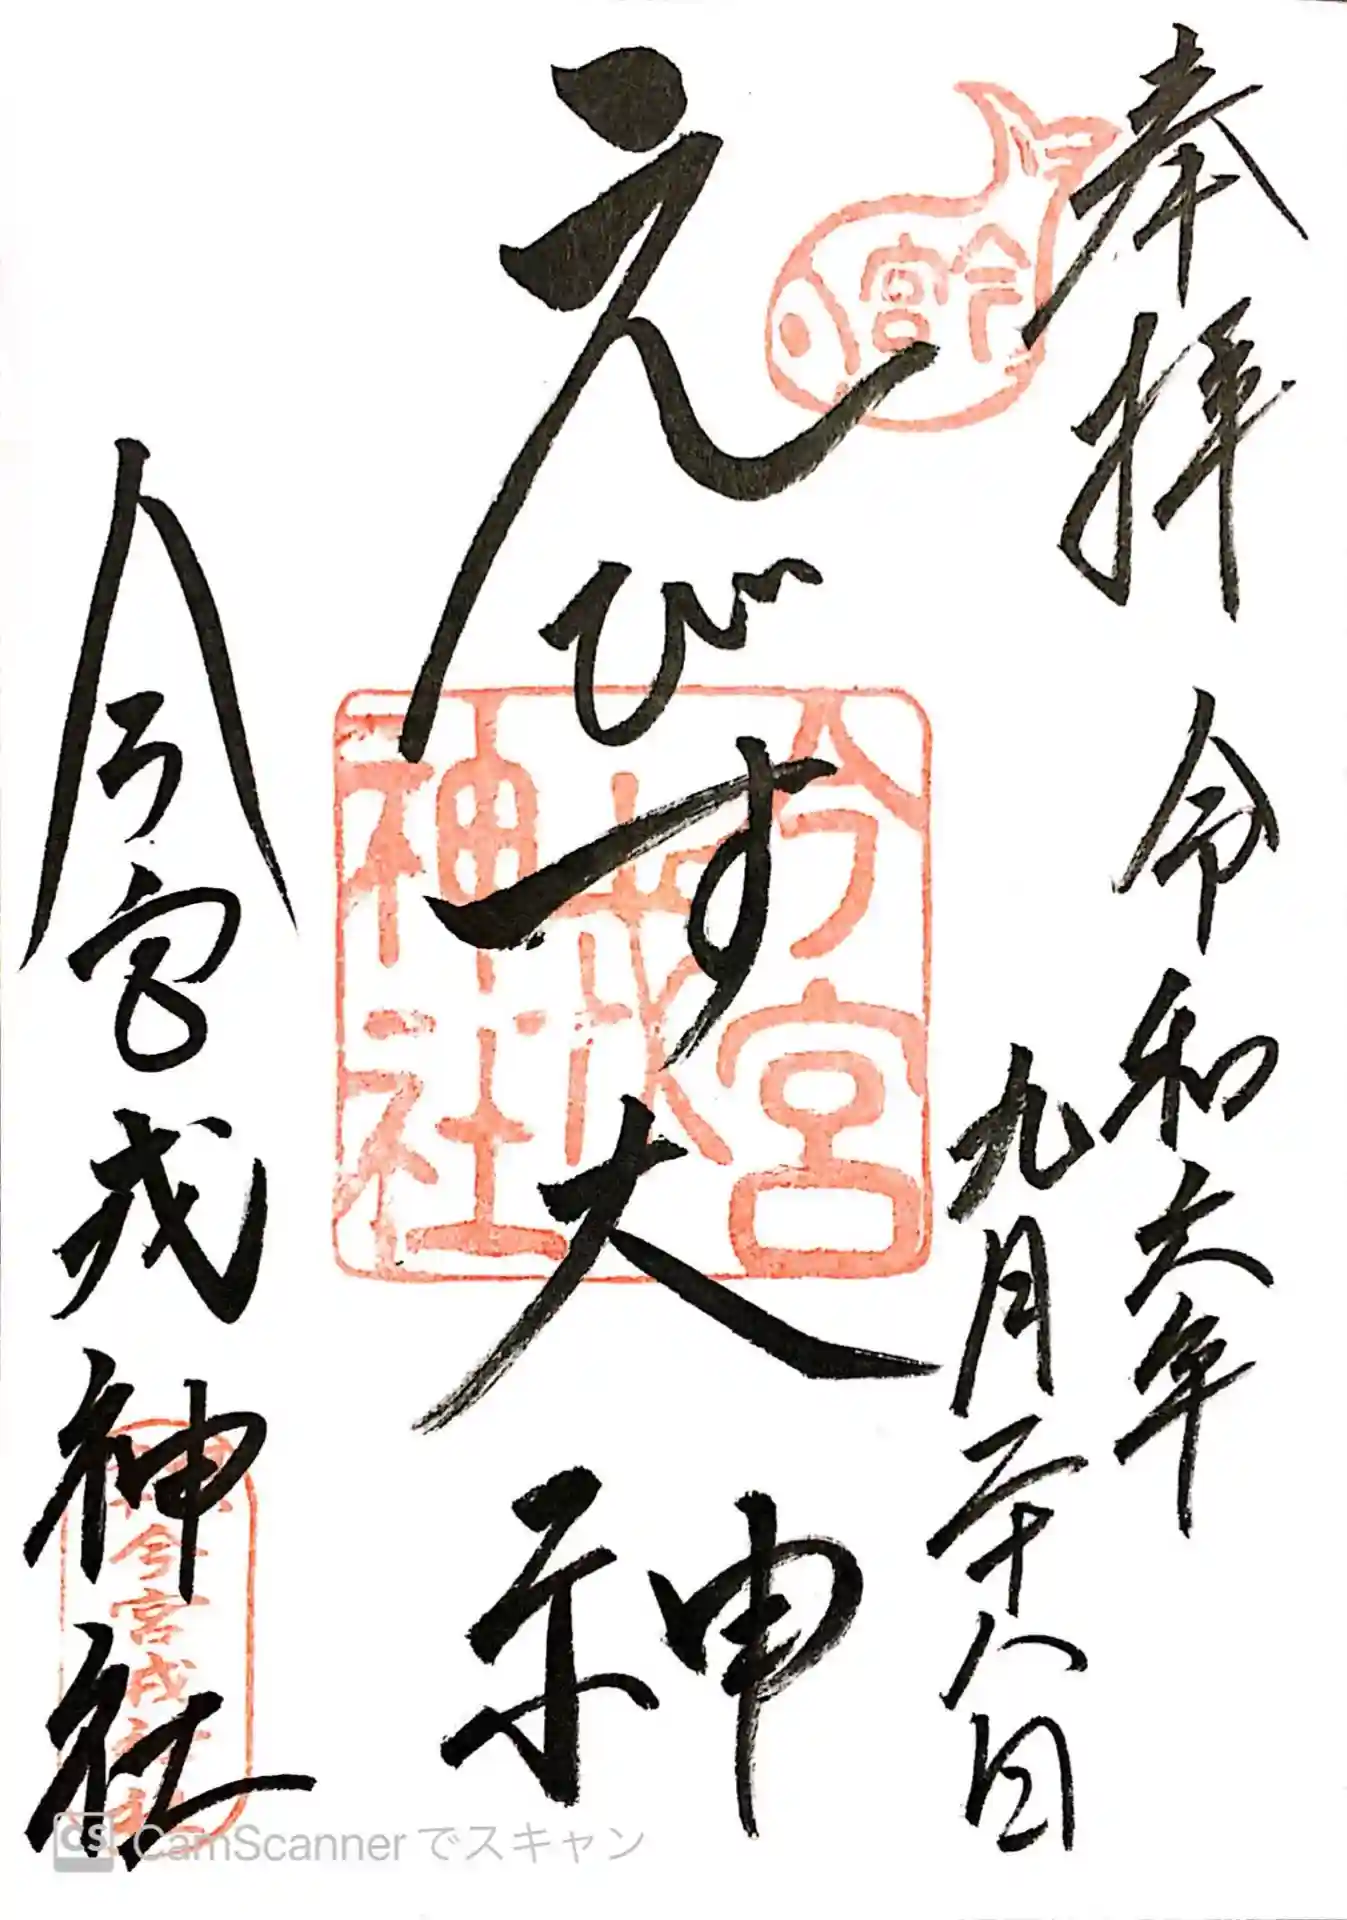 奉拝
令和六年
九月二十八日
今宮
えびす大神
今宮
戎
神社
今宮戎神社
今宮戎神社
CS CamScannerでスキャン